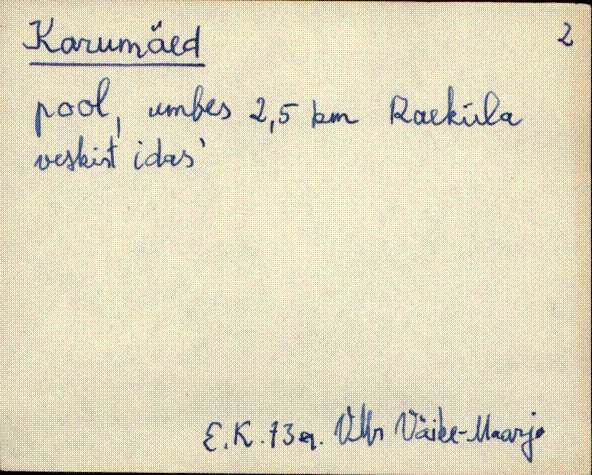 Karumäed 2
pool, umbes 2,5 km Raeküla
veskist idas'
E.K. 73 a. VMr Väike-Maarja